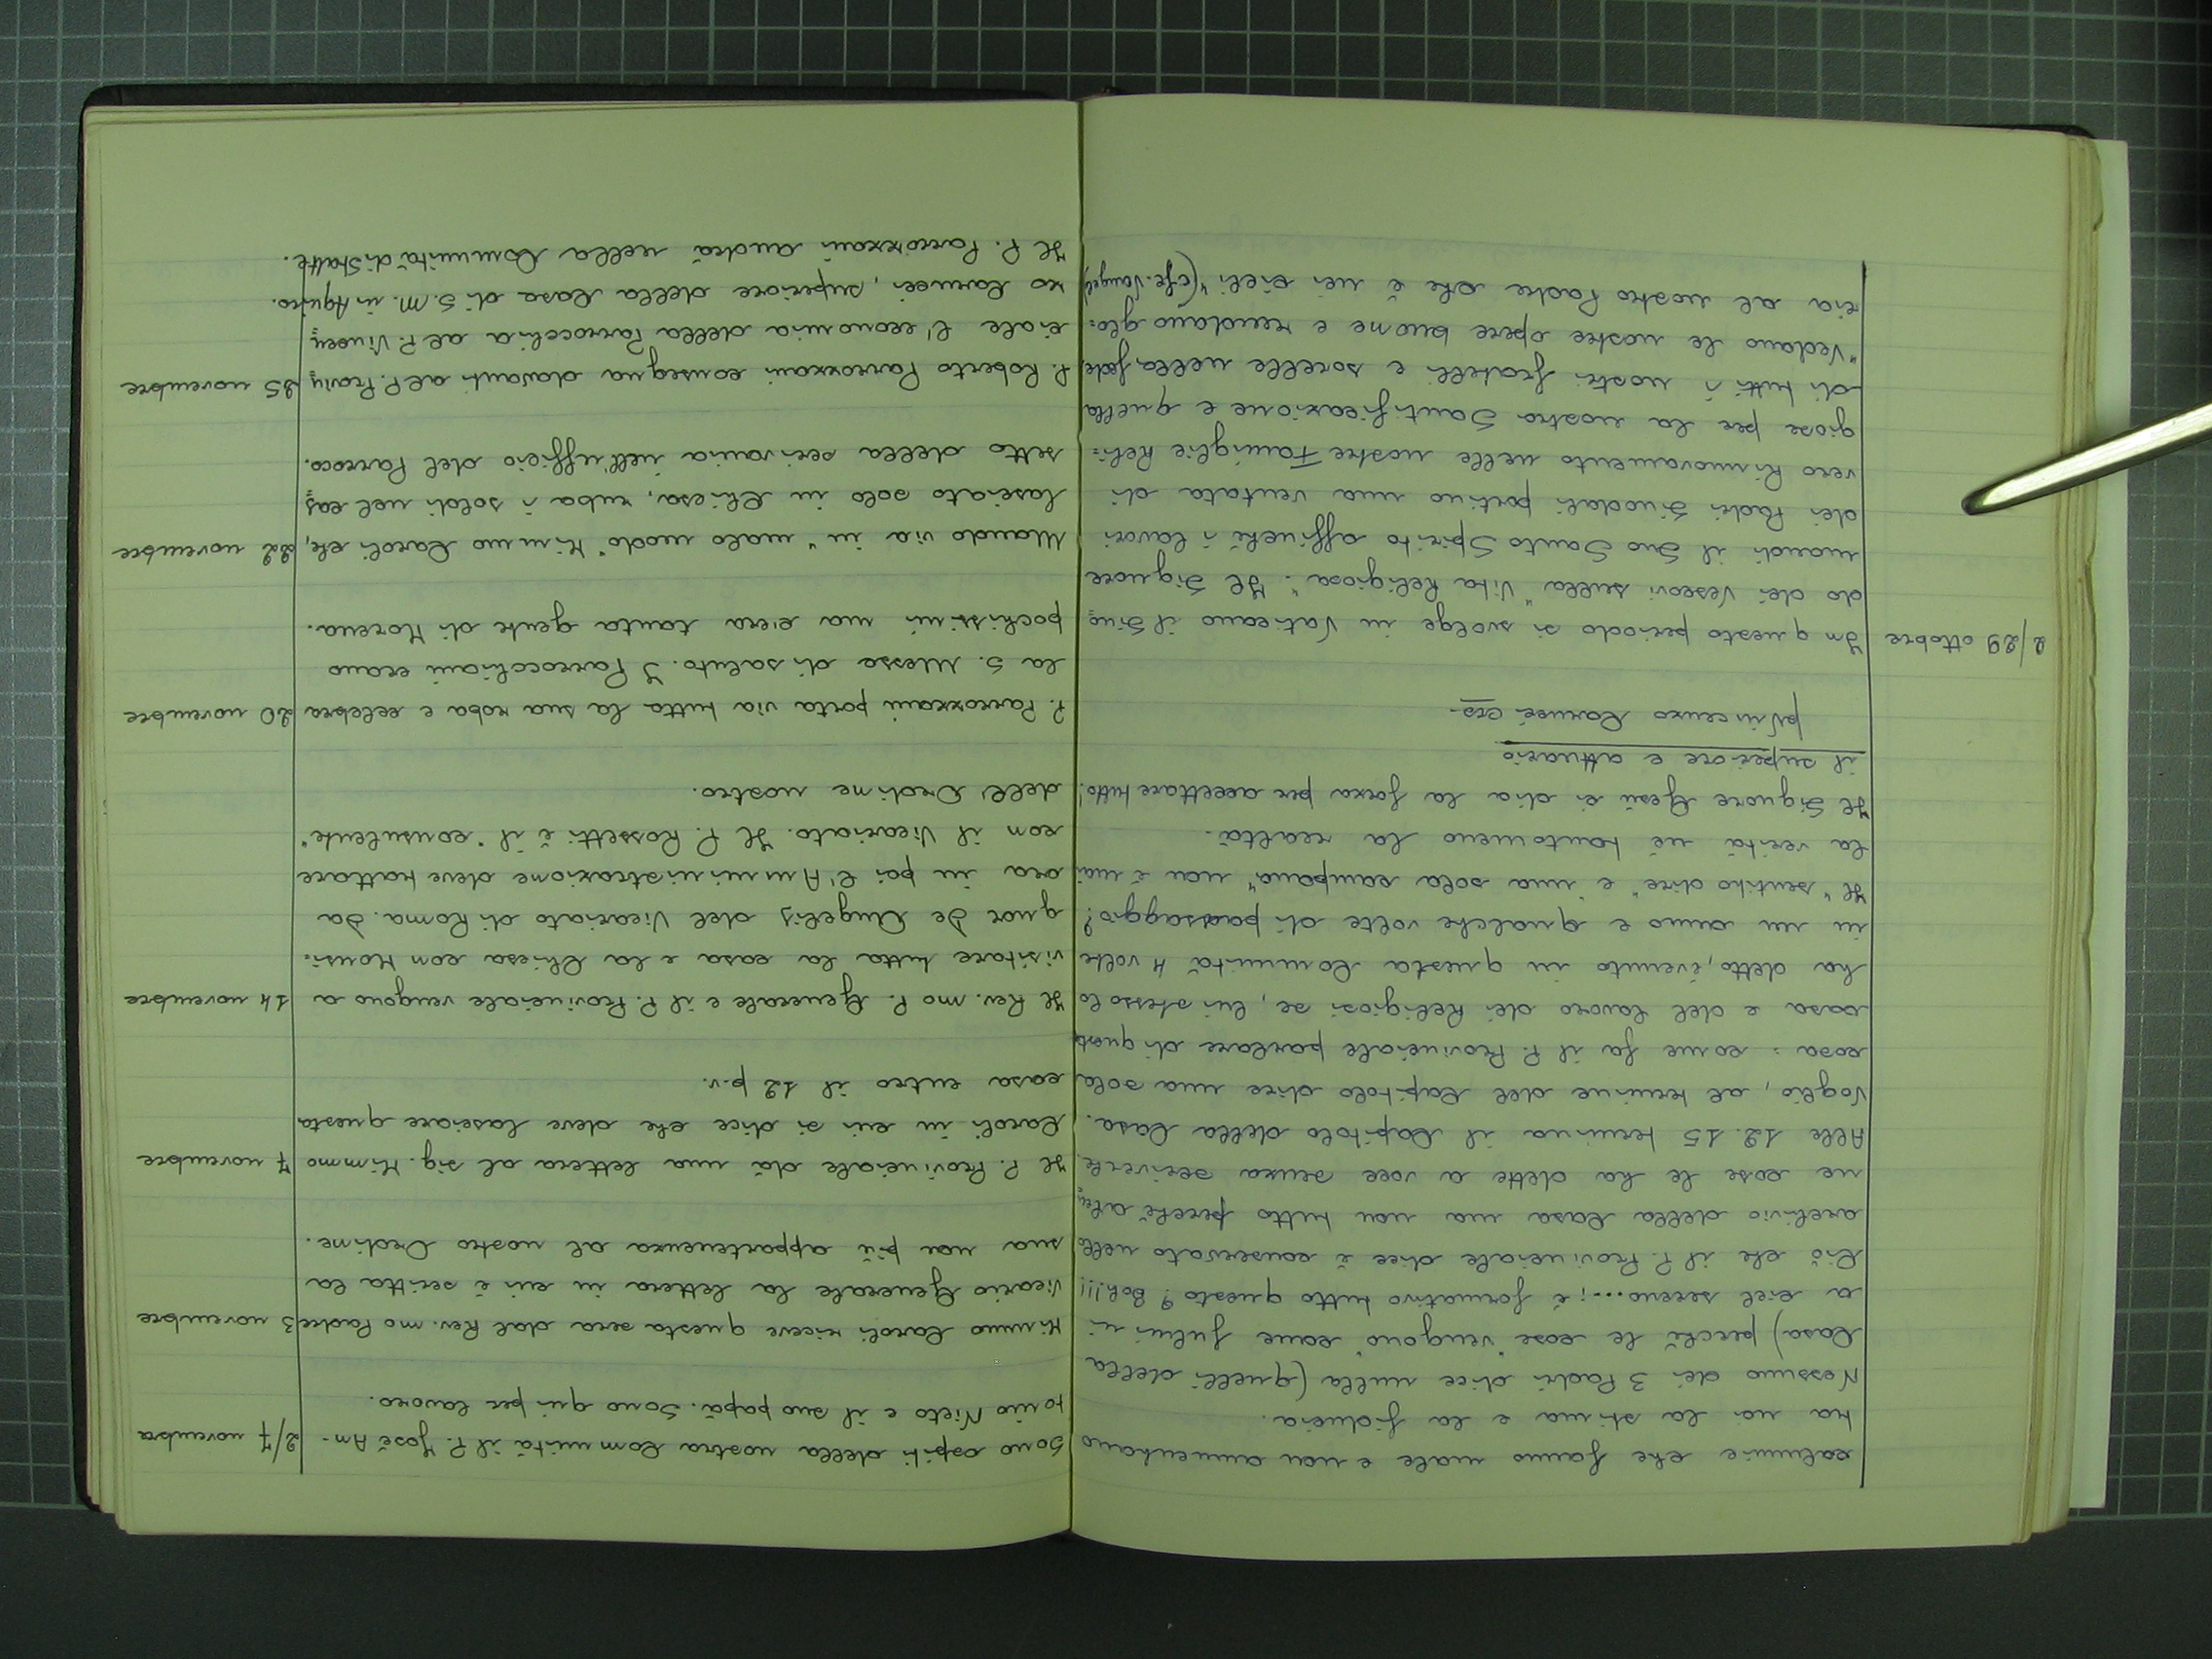 calunnie che fanno male e non aumentano
tra noi la stima e la fiducia.
Nessuno dei 3 Padri dice nulla (quelli della
Casa) perchè le cose "vengono" come fulmini
a ciel sereno...; è formativo tutto questo? Boh!!!
Ciò che il P. Provinciale dice è conservato nello
archivio della Casa ma non tutto perchè alcu
ne cose le ha dette a voce senza scriverle.
Alle 12.15 termina il Capitolo della Casa.
Voglio, al termine del Capitolo dire una sola
cosa: come fa il P. Provinciale parlare di questa
casa e del lavoro dei Religiosi se, lui stesso lo
ha detto, è venuto in questa Comunità 4 volte
in un anno e qualche volte di passaggio?
Il "sentito dire" e "una sola campana" non è mai
la verità nè tantomeno la realtà.
Il Signore Gesù ci dia la forza per accettare tutto!
il superiore e attuario
pVincenzo Carnoci crs.
2/29 ottobre In questo periodo si svolge in Vaticano il Sino
do dei Vescovi sulla "Vita Religiosa". Il Signore
mandi il Suo Santo Spirito affinchè i lavori
dei Padri Sinodali portino una ventata di
vero Rinnovamento nelle nostre Famiglie Reli=
giose per la nostra Santificazione e quella
di tutti i nostri fratelli e sorelle nella fede,
"Vedano le nostre opere buone e rendano glo=
ria al nostro Padre che è nei cieli" (cfr. Vangelo)
Sono ospiti della nostra Comunità il P. Josè An- 2/7 novembre
tonio Nieto e il suo papà. Sono qui per lavoro.
Mimmo Caroli riceve questa sera dal Rev.mo Padre 3 novembre
Vicario Generale la lettera in cui è scritta la
sua non più appartenenza al nostro Ordine.
Il P. Provinciale dà una lettera al sig. Mimmo 7 novembre
Caroli in cui si dice che deve lasciare questa
casa entro il 12 p.v.
Il Rev.mo P. Generale e il P. Provinciale vengono a 14 novembre
visitare tutta la casa e la Chiesa con Monsi=
gnor De Angelis del Vicariato di Roma. Da
ora in poi l'Amministrazione deve trattare
con il Vicariato. Il P. Rossetti è il "consulente"
dell'Ordine nostro.
P. Parrozzani porta via tutta la sua roba e celebra 20 novembre
la S. Messa di saluto. I Parrocchiani erano
pochissimi ma c'era tanta gente di Morena.
Mando via in "malo modo" Mimmo Caroli che, 22 novembre
lasciato solo in Chiesa, ruba i soldi nel cas
setto della scrivania nell'ufficio del Parroco.
P. Roberto Parrozzani consegna davanti al P. Provin 25 novembre
ciale l'economia della Parrocchia al P. Vincen
zo Carnoci, superiore della Casa di S. M. in Aquiro.
Il P. Parrozzani andrà nella Comunità di Statte.